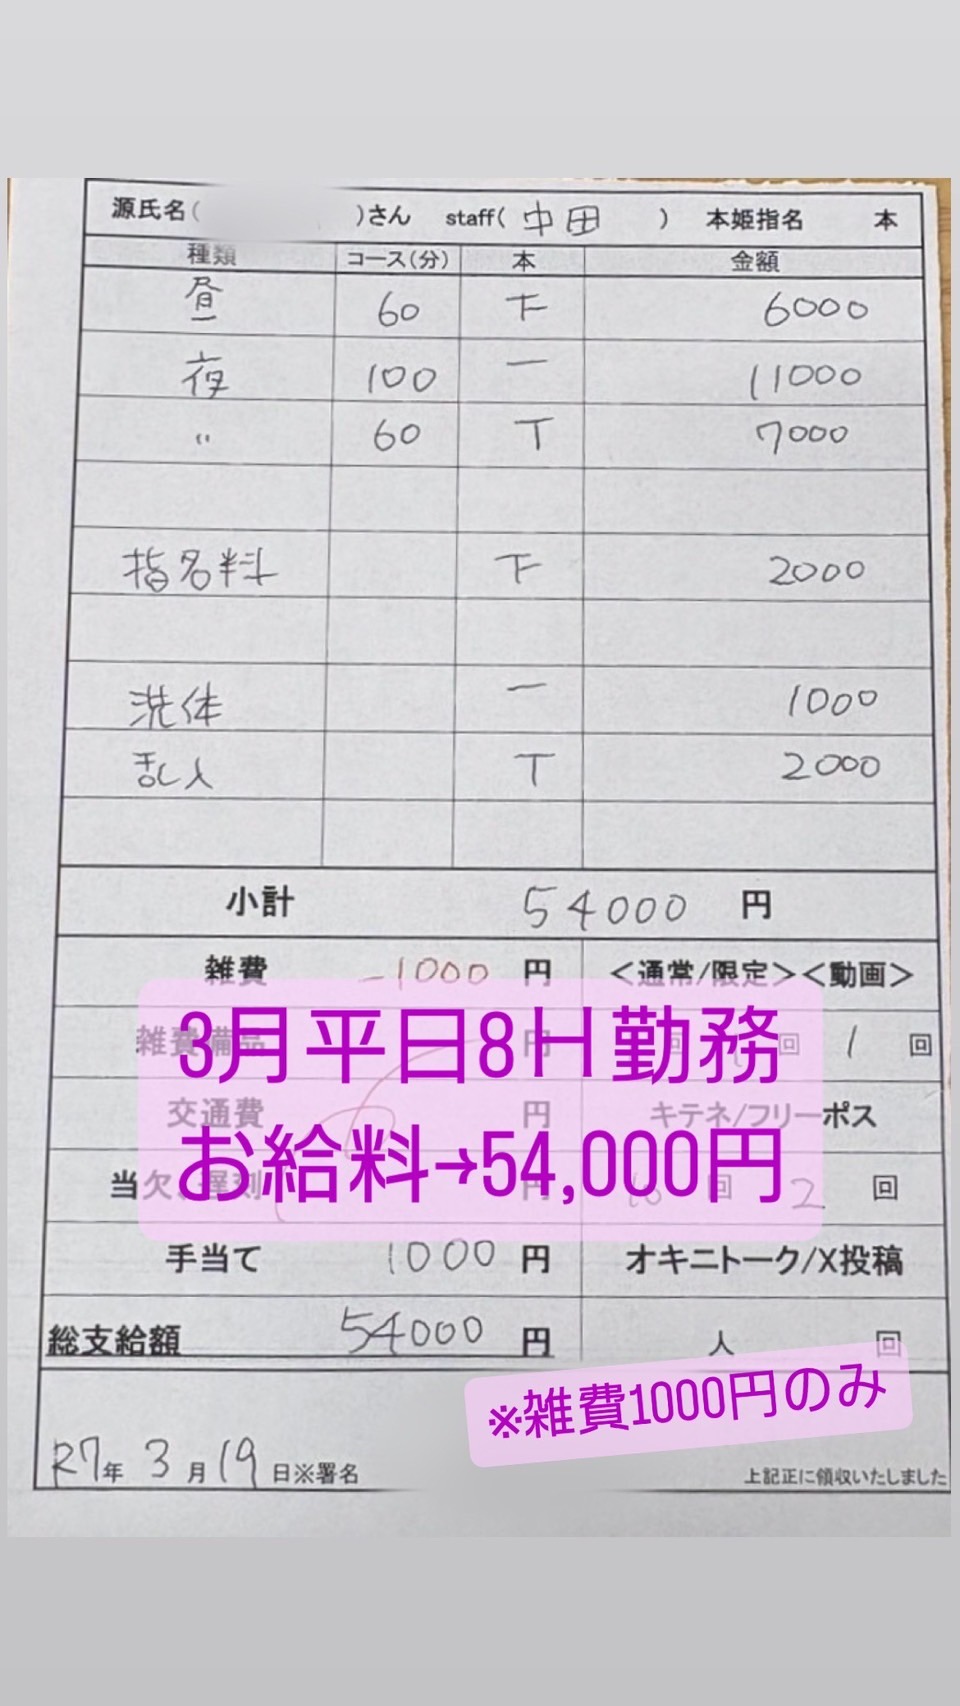 源氏名( )さん staff( 中田 ) 本姫指名 本
種類 コース(分) 本 金額
昼 60 下 6000
夜 100 一 11000
〃 60 T 7000
指名料 下 2000
洗体 一 1000
乱入 T 2000
小計 54000 円
雑費 -1000 円 <通常/限定><動画>
雑費備品 円 回 回 1 回
3月平日8H勤務
交通費 円 キテネ/フリーポス
お給料→54,000円
当欠、遅刻 円 回 2 回
手当て 1000 円 オキニトーク/X投稿
総支給額 54000 円 人 回
※雑費1000円のみ
R7年 3月19日※署名 上記正に領収いたしました